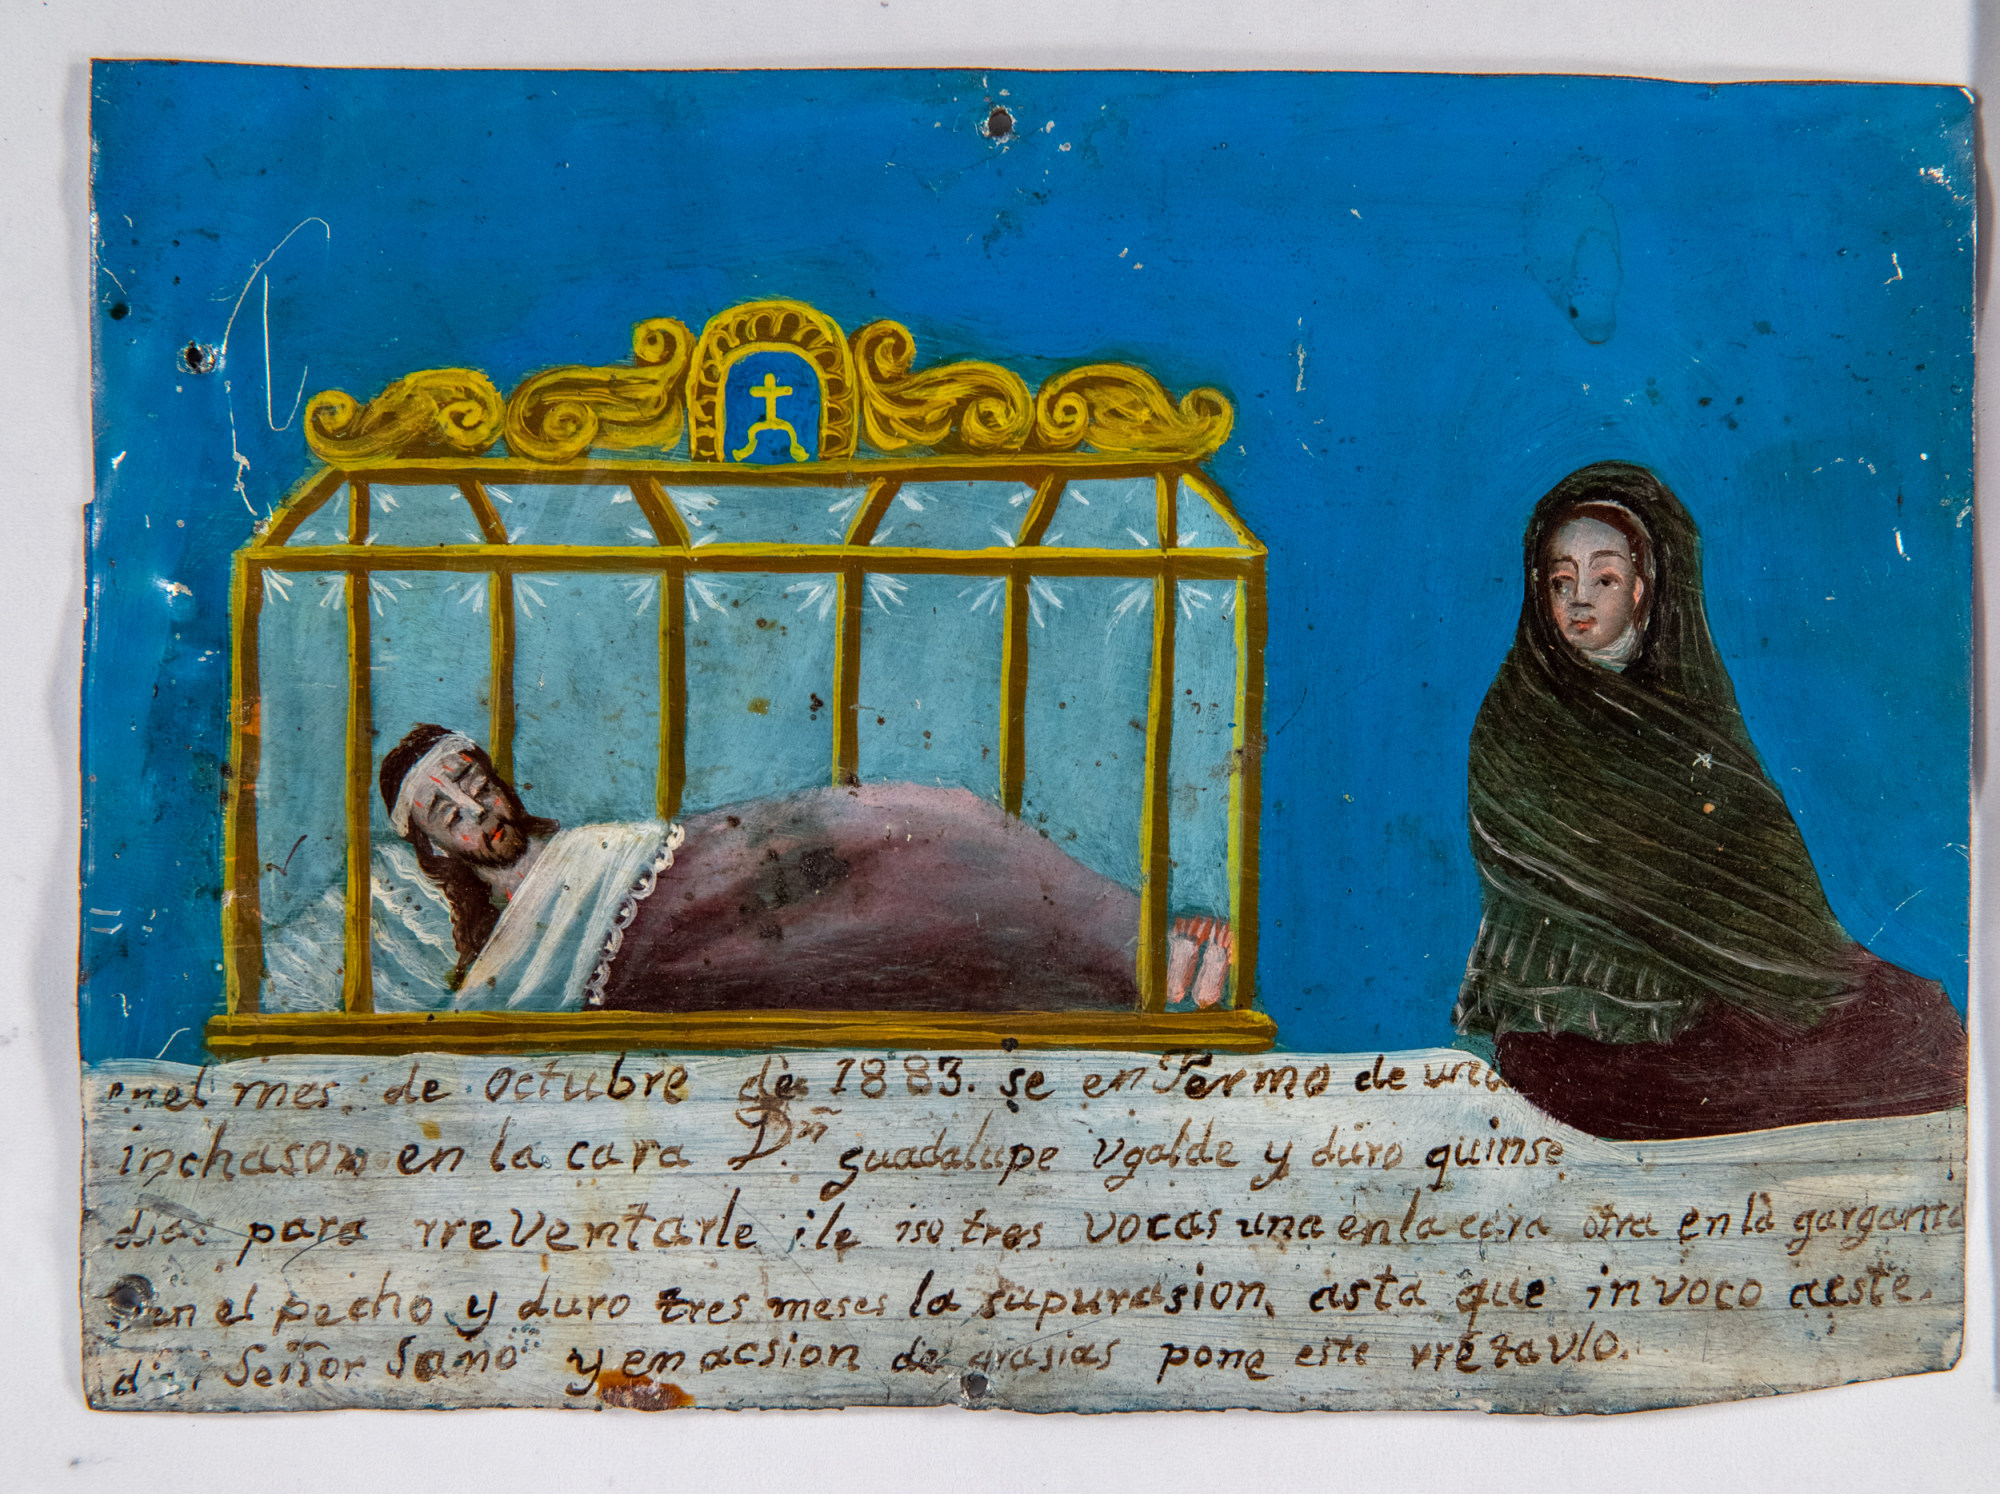 enel mes. de octubre de 1883. se enFermo de una
inchason en la cara D.ñ guadalupe vgalde y duro quinse
dias para rreventarle i le iso tres vocas una en la cara otra en la garganta
en el pecho y duro tres meses la supurasion, asta que invoco aeste.
Señor Sano y en acsion de grasias pone este rretavlo.